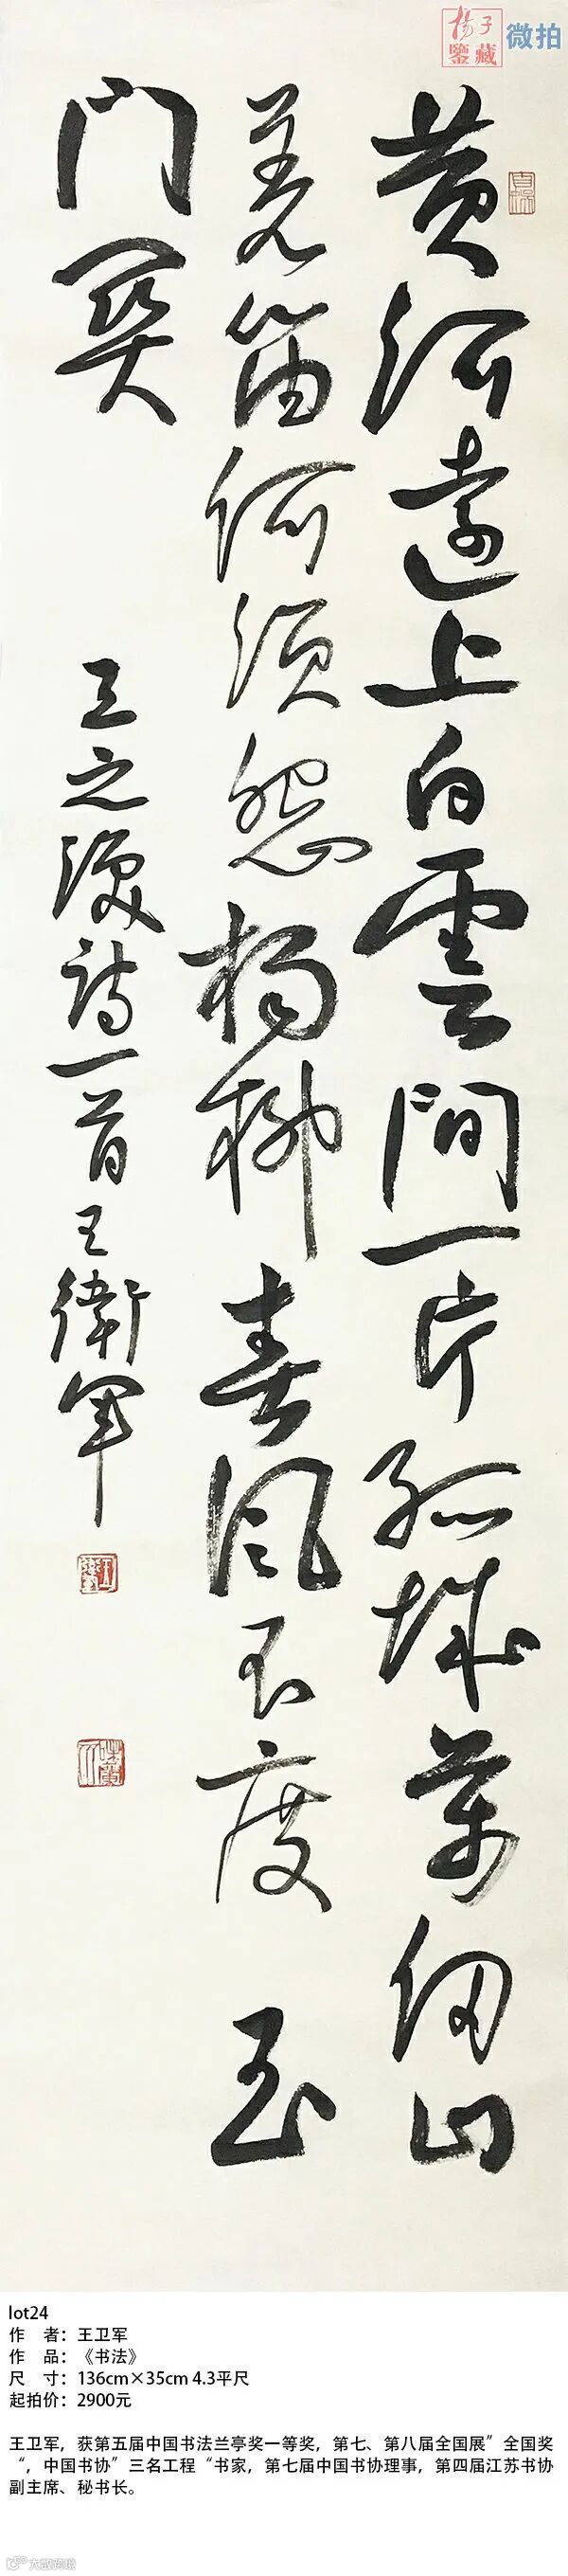 揚子
鑒藏
微拍
黄河遠上白雲間一片孤城萬仞山
羌笛何須怨楊柳春風不度玉
門關
王之渙詩一首王衛軍
lot24
作 者：王卫军
作 品：《书法》
尺 寸：136cm×35cm 4.3平尺
起拍价：2900元
王卫军，获第五届中国书法兰亭奖一等奖，第七、第八届全国展”全国奖
“，中国书协”三名工程“书家，第七届中国书协理事，第四届江苏书协
副主席、秘书长。